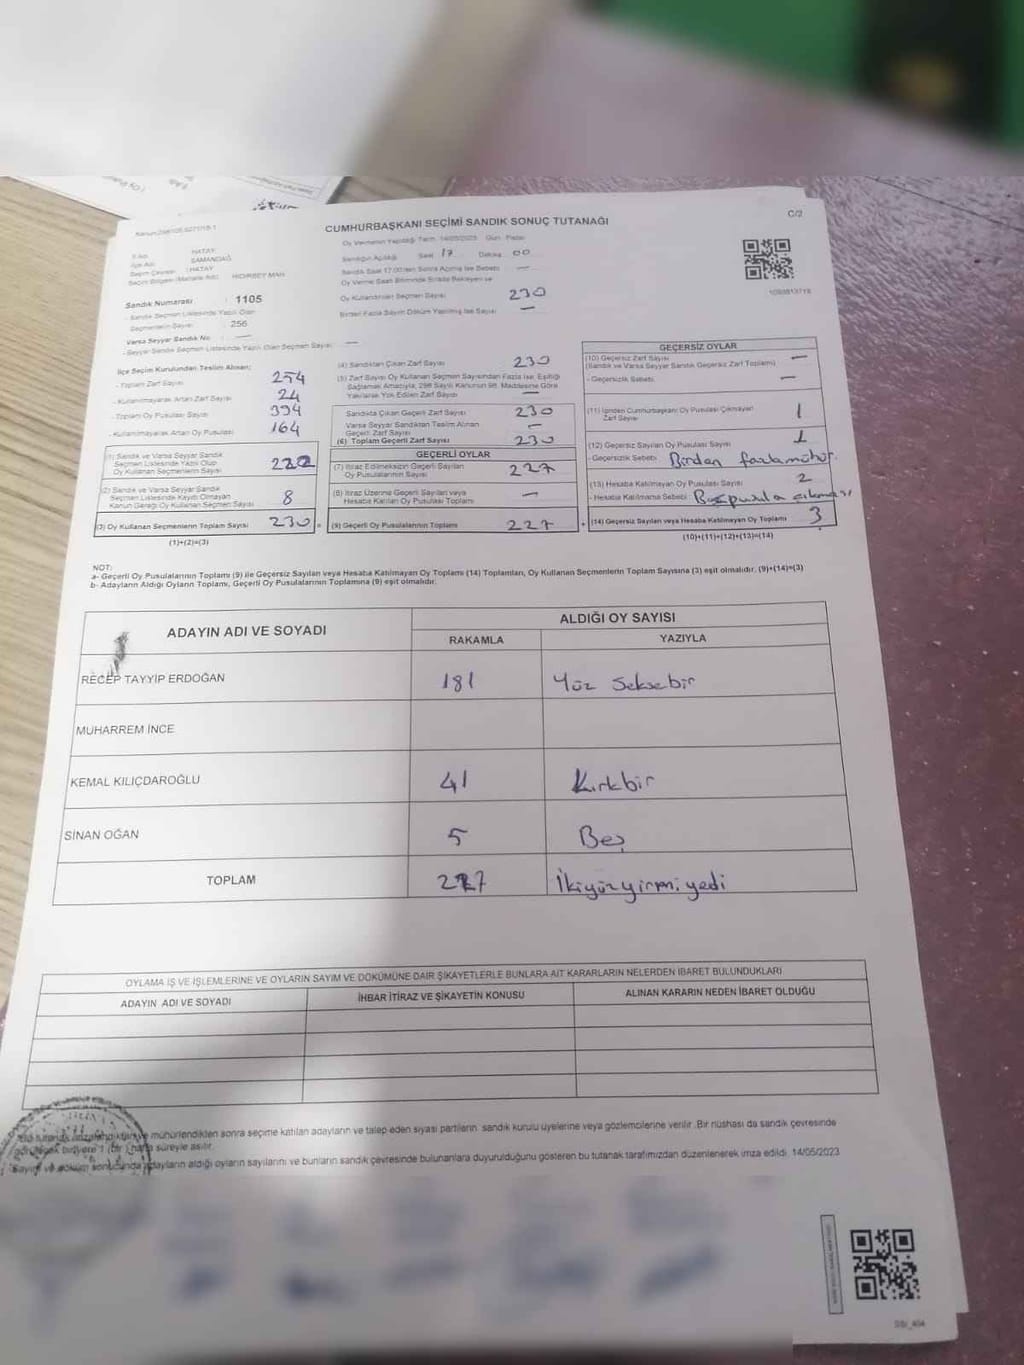 C/2
CUMHURBAŞKANI SEÇİMİ SANDIK SONUÇ TUTANAĞI
Oy Vermenin Yapıldığı Tarih: 14/05/2023 Gün: Pazar
İl Adı HATAY
İlçe Adı SAMANDAĞ
Seçim Çevresi HATAY
Seçim Bölgesi (Mahalle Adı) HIDIRBEY MAH
Sandığın Açıldığı Saat 17 Dakika 00
Sandık Saat 17:00'den Sonra Açılmış İse Sebebi —
Oy Verme Saati Bitiminde Sırada Bekleyen ve
Oy Kullandırılan Seçmen Sayısı 230
Birden Fazla Sayım Döküm Yapılmış İse Sayısı —
Sandık Numarası : 1105
- Sandık Seçmen Listesinde Yazılı Olan
Seçmenlerin Sayısı : 256
Varsa Seyyar Sandık No : —
- Seyyar Sandık Seçmen Listesinde Yazılı Olan Seçmen Sayısı : —
İlçe Seçim Kurulundan Teslim Alınan;
- Toplam Zarf Sayısı 254
- Kullanılmayarak Artan Zarf Sayısı 24
- Toplam Oy Pusulası Sayısı 394
- Kullanılmayarak Artan Oy Pusulası 164
(1) Sandık ve Varsa Seyyar Sandık
Seçmen Listesinde Yazılı Olup
Oy Kullanan Seçmenlerin Sayısı 222
(2) Sandık ve Varsa Seyyar Sandık
Seçmen Listesinde Kayıtlı Olmayan
Kanun Gereği Oy Kullanan Seçmen Sayısı 8
(3) Oy Kullanan Seçmenlerin Toplam Sayısı 230
(1)+(2)=(3)
(4) Sandıktan Çıkan Zarf Sayısı 230
(5) Zarf Sayısı Oy Kullanan Seçmen Sayısından Fazla İse, Eşitliği
Sağlamak Amacıyla, 298 Sayılı Kanunun 98. Maddesine Göre
Yakılarak Yok Edilen Zarf Sayısı —
Sandıkta Çıkan Geçerli Zarf Sayısı 230
Varsa Seyyar Sandıktan Teslim Alınan
Geçerli Zarf Sayısı —
(6) Toplam Geçerli Zarf Sayısı 230
GEÇERLİ OYLAR
(7) İtiraz Edilmeksizin Geçerli Sayılan
Oy Pusulalarının Sayısı 227
(8) İtiraz Üzerine Geçerli Sayılan veya
Hesaba Katılan Oy Pusulası Toplamı —
(9) Geçerli Oy Pusulalarının Toplamı 227
GEÇERSİZ OYLAR
(10) Geçersiz Zarf Sayısı —
(Sandık ve Varsa Seyyar Sandık Geçersiz Zarf Toplamı)
- Geçersizlik Sebebi: —
(11) İçinden Cumhurbaşkanı Oy Pusulası Çıkmayan
Zarf Sayısı 1
(12) Geçersiz Sayılan Oy Pusulası Sayısı 1
- Geçersizlik Sebebi Birden fazla mühür.
(13) Hesaba Katılmayan Oy Pusulası Sayısı 2
- Hesaba Katılmama Sebebi
(14) Geçersiz Sayılan veya Hesaba Katılmayan Oy Toplamı 3
(10)+(11)+(12)+(13)=(14)
NOT:
a- Geçerli Oy Pusulalarının Toplamı (9) ile Geçersiz Sayılan veya Hesaba Katılmayan Oy Toplamı (14) Toplamları, Oy Kullanan Seçmenlerin Toplam Sayısına (3) eşit olmalıdır. (9)+(14)=(3)
b- Adayların Aldığı Oyların Toplamı, Geçerli Oy Pusulalarının Toplamına (9) eşit olmalıdır.
ADAYIN ADI VE SOYADI
ALDIĞI OY SAYISI
RAKAMLA YAZIYLA
RECEP TAYYİP ERDOĞAN 181 Yüz Seksebir
MUHARREM İNCE
KEMAL KILIÇDAROĞLU 41 Kırkbir
SİNAN OĞAN 5 Beş
TOPLAM 227 İkiyüzyirmi yedi
OYLAMA İŞ VE İŞLEMLERİNE VE OYLARIN SAYIM VE DÖKÜMÜNE DAİR ŞİKAYETLERLE BUNLARA AİT KARARLARIN NELERDEN İBARET BULUNDUKLARI
ADAYIN ADI VE SOYADI İHBAR İTİRAZ VE ŞİKAYETİN KONUSU ALINAN KARARIN NEDEN İBARET OLDUĞU
mühürlendikten sonra seçime katılan adayların ve talep eden siyasi partilerin, sandık kurulu üyelerine veya gözlemcilerine verilir. Bir nüshası da sandık çevresinde
görülecek bir yere 1 (bir) hafta süreyle asılır.
Sayım ve döküm sonucunda adayların aldığı oyların sayılarını ve bunların sandık çevresinde bulunanlara duyurulduğunu gösteren bu tutanak tarafımızdan düzenlenerek imza edildi. 14/05/2023